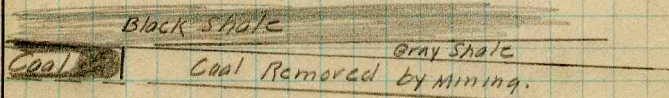 Black Shale
Gray Shale
Coal
Coal Removed by Mining.